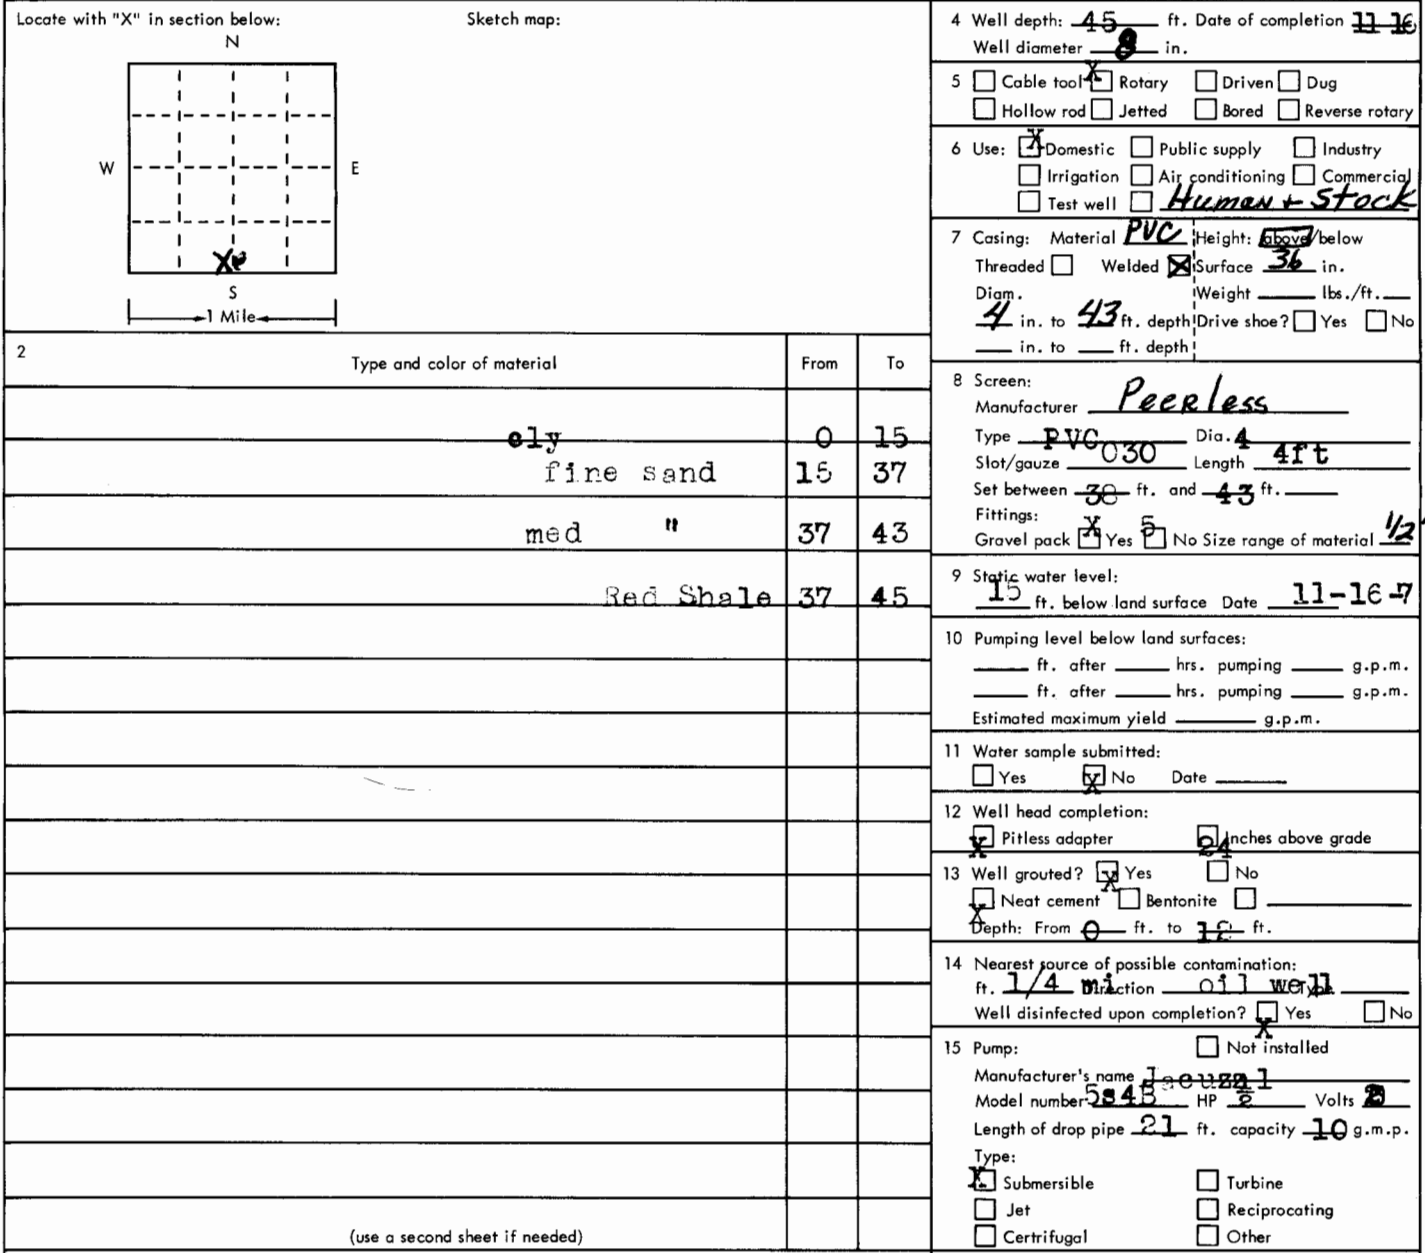 Locate with "X" in section below:
Sketch map:
N
W
E
X
S
1 Mile
2
Type and color of material
From
To
cly 0 15
fine sand 15 37
med " 37 43
Red Shale 37 45
(use a second sheet if needed)
4 Well depth: 45 ft. Date of completion 11 16
Well diameter 8 in.
5 Cable tool X Rotary Driven Dug
Hollow rod Jetted Bored Reverse rotary
6 Use: X Domestic Public supply Industry
Irrigation Air conditioning Commercial
Test well Human + Stock
7 Casing: Material PVC Height: above/below
Threaded Welded X Surface 36 in.
Diam. Weight lbs./ft.
4 in. to 43 ft. depth Drive shoe? Yes No
in. to ft. depth
8 Screen:
Manufacturer Peerless
Type PVC Dia. 4
Slot/gauze 030 Length 4ft
Set between 38 ft. and 43 ft.
Fittings:
Gravel pack X Yes 5 No Size range of material 1/2
9 Static water level:
15 ft. below land surface Date 11-16-7
10 Pumping level below land surfaces:
ft. after hrs. pumping g.p.m.
ft. after hrs. pumping g.p.m.
Estimated maximum yield g.p.m.
11 Water sample submitted:
Yes X No Date
12 Well head completion:
X Pitless adapter 24 Inches above grade
13 Well grouted? X Yes No
X Neat cement Bentonite
Depth: From 0 ft. to 12 ft.
14 Nearest source of possible contamination:
ft. 1/4 mi Direction oil well Type
Well disinfected upon completion? X Yes No
15 Pump: Not installed
Manufacturer's name Jacuzzi
Model number 5s4B HP Volts
Length of drop pipe 21 ft. capacity 10 g.m.p.
Type:
X Submersible Turbine
Jet Reciprocating
Certrifugal Other